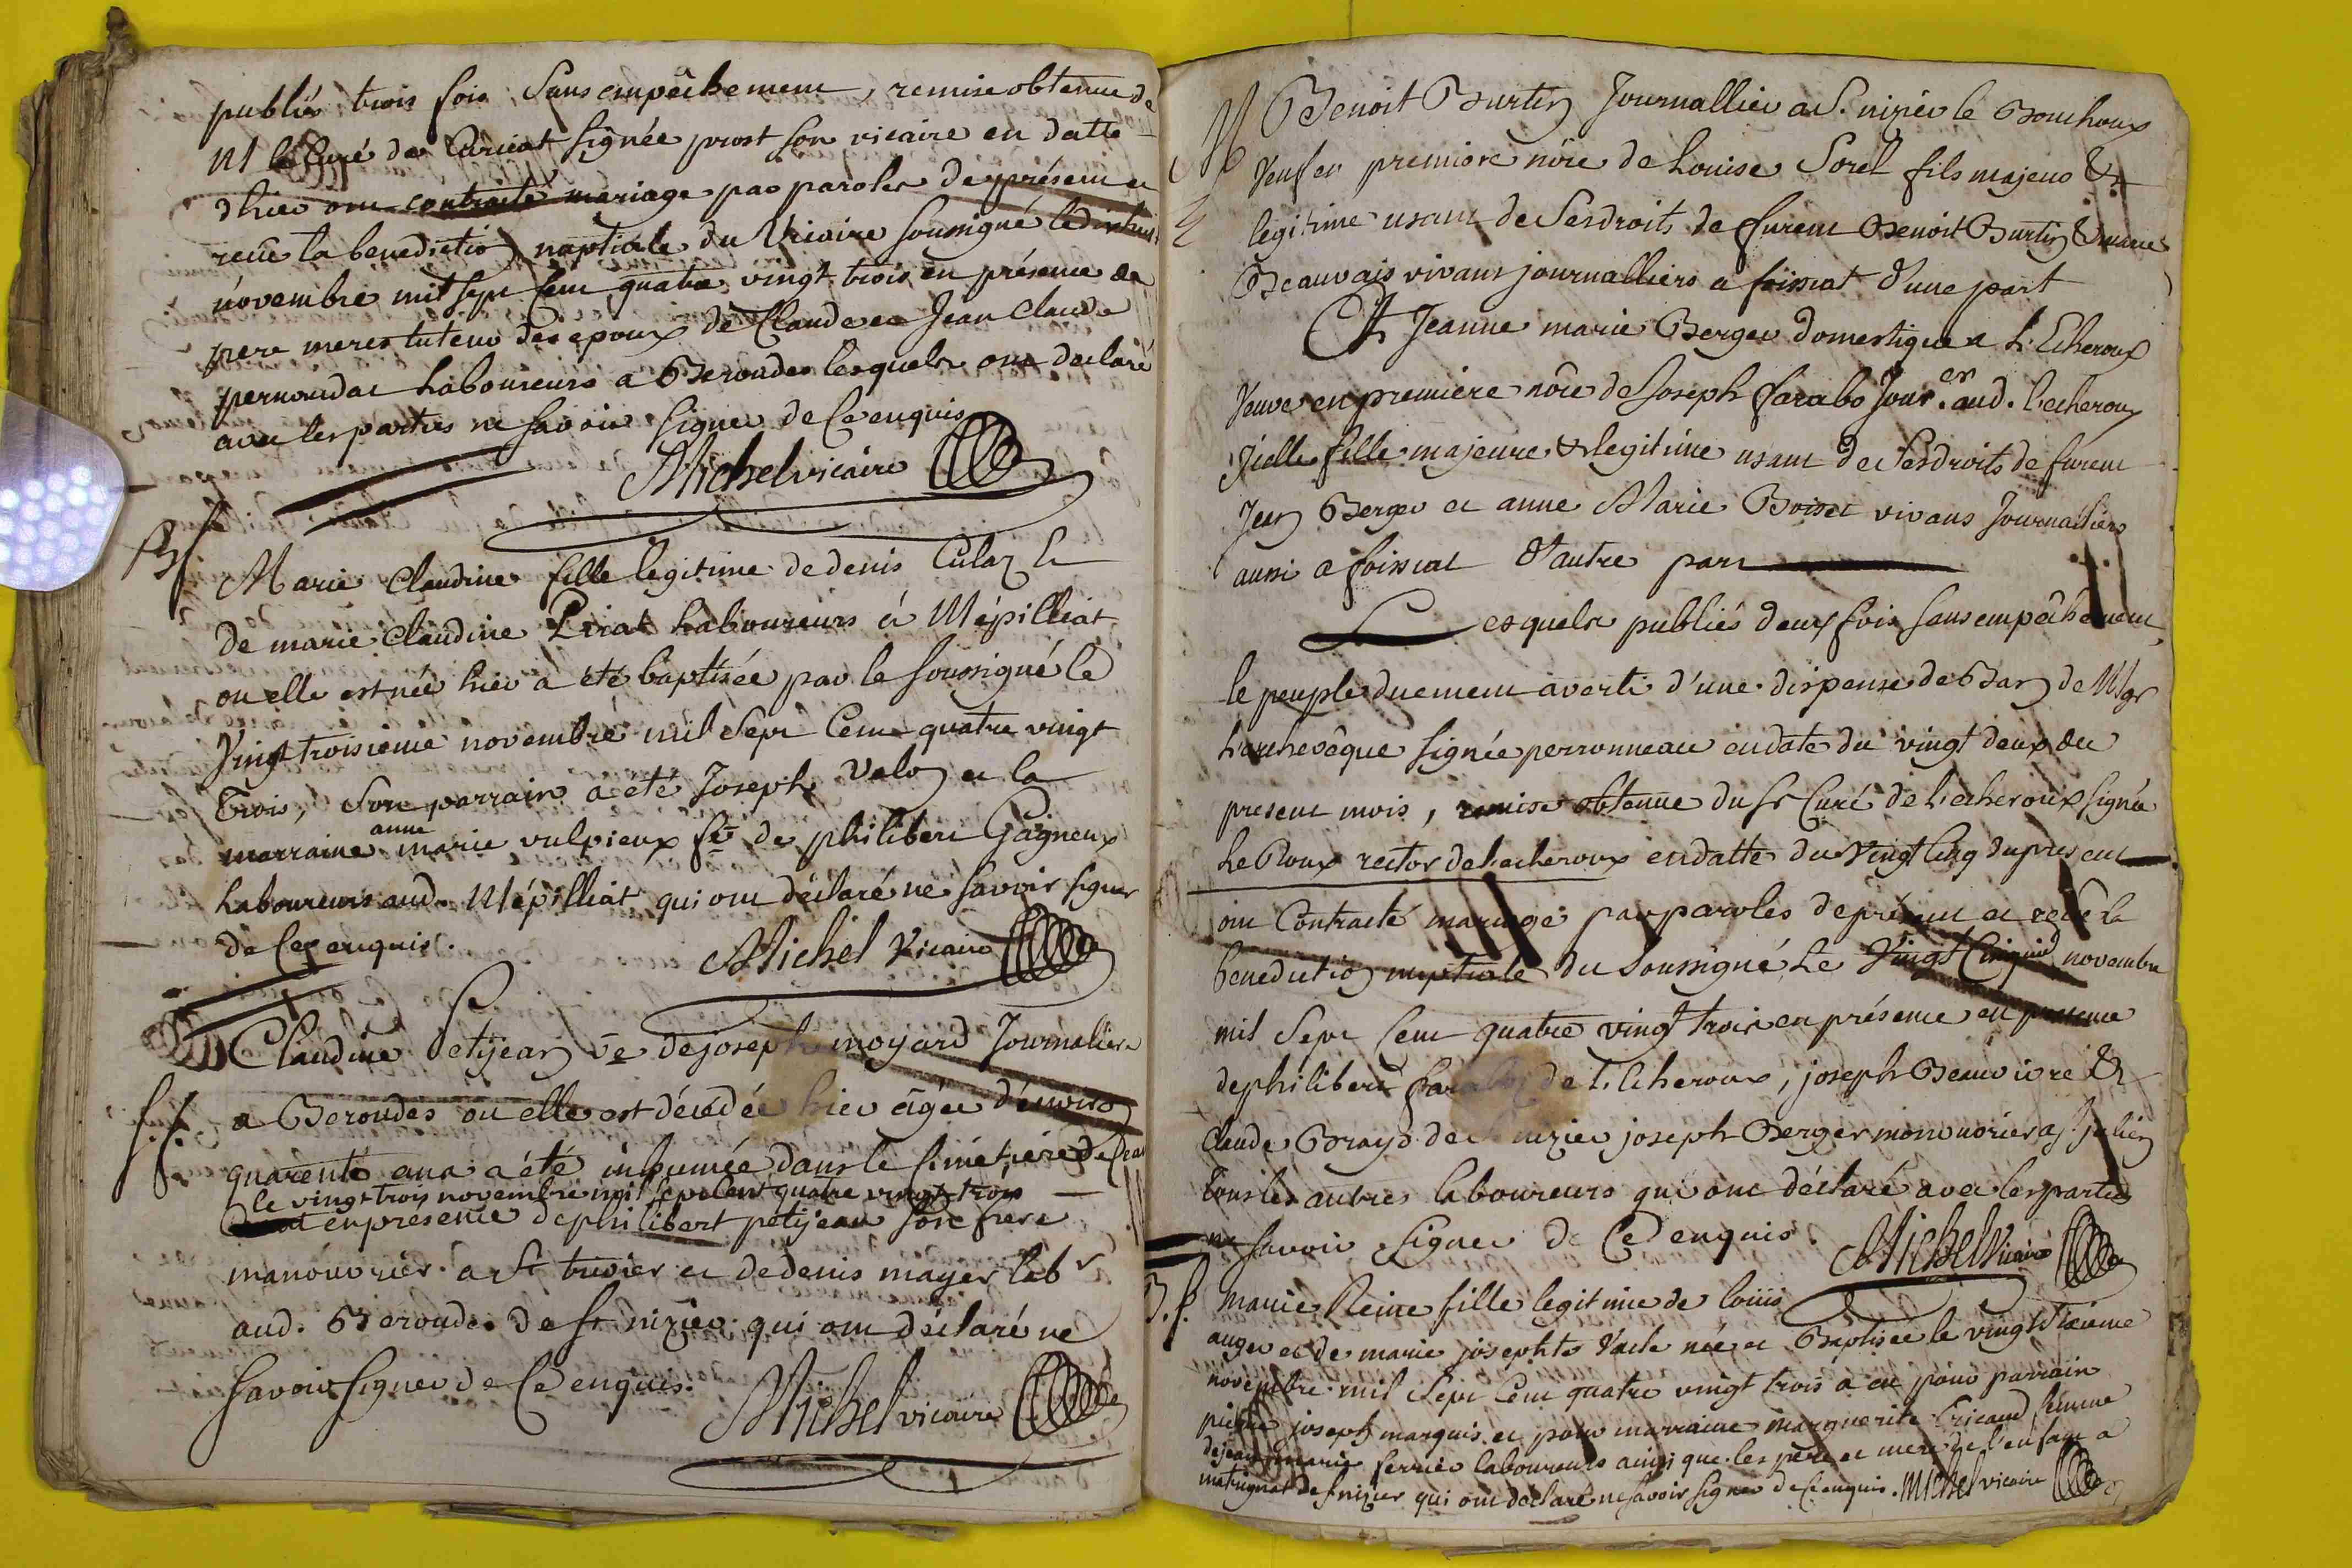 publiés trois fois sans empêchement, remise obtenue de
M le Curé de Curciat signée prost son vicaire en datte
d'hier ont contracté mariage par paroles de présent et
reçue la benediction nuptiale du Vicaire soussigné le
novembre mil sept cent quatre vingt trois en présence de
pere meres tuteur des epoux de Claude et Jean Claude
pernoudat Laboureurs a Beroudes lesquels ont declaré
avec les parties ne savoir signer de ce enquis
Michel vicaire
B f
Marie Claudine fille legitime de denis Culaz &
de marie Claudine Pirat Laboureurs à Mépilliat
ou elle est née hier a été baptisée par le soussigné le
Vingt troisieme novembre mil sept Cent quatre vingt
trois, son parrain a été Joseph Velon et la
anne
marraine marie vulpieux fe de philibert Gagneux
Laboureurs aud. Mépilliat qui ont déclaré ne savoir signer
de ce enquis.
Michel Vicaire
Claudine Petijean ve de joseph moyard Journaliere
S. f. a Beroudes ou elle est décédée hier âgée d'environ
quarente ans a été inhumée dans le simetiere de
le vingt trois novembre mil sept cent quatre vingt trois
en présence de philibert petijean son frere
manouvrier a St trivier et de denis mayer labr
aud. Beroudes de St nizier qui ont declaré ne
savoir signer de Ce enquis.
Michel vicaire
M Benoit Burtin Journallier a S. nizier le Bouchoux
Veuf en premiere nôce de Louise Sorel fils majeur &
legitime usant de ses droits de furent Benoit Burtin & marie
Beauvais vivans journalliers a foissiat d'une part
Et Jeanne marie Berger domestique a L'Echeroux
Veuve en premiere nôce de Joseph farabo Jour.er aud. l'echeroux
Icelle fille majeure & legitime usant de ses droits de furent
Jean Berger et anne Marie Boisset vivans Journaliers
aussi a foissiat d'autre part
Lesquels publiés deux fois sans empêchement,
le peuple duement averti d'une dispense de Ban de Mgr
L'archevêque signée perronneau en date du vingt deux du
present mois, remise obtenue du Sr Curé de l'echeroux signée
Le Roux rector de l'echeroux en datte du Vingt Cinq du present
ont Contracté mariage par paroles de présent et reçû la
benediction nuptiale du soussigné Le Vingt Cinquieme novembre
mil sept Cent quatre vingt trois en présence en presence
de philibert de L'Echeroux, joseph Beauvoire &
Claude Brayd de nizier joseph Berger manouvrier a St julien
tous les autres laboureurs qui ont déclaré avec les parties
ne savoir signer de Ce enquis.
Michel Vicaire
B. f. Marie Reine fille legitime de loüis
auger et de marie josephte Vacle née et Baptisée le vingt sixieme
novembre mil sept Cent quatre vingt trois a eu pour parrain
pierre joseph marquis et pour marraine marguerite Cricaud femme
de jean marie ferrier laboureurs ainsi que les père et mere de l'enfant a
matrignat de S nizier qui ont declaré ne savoir signer de ce enquis. Michel vicaire